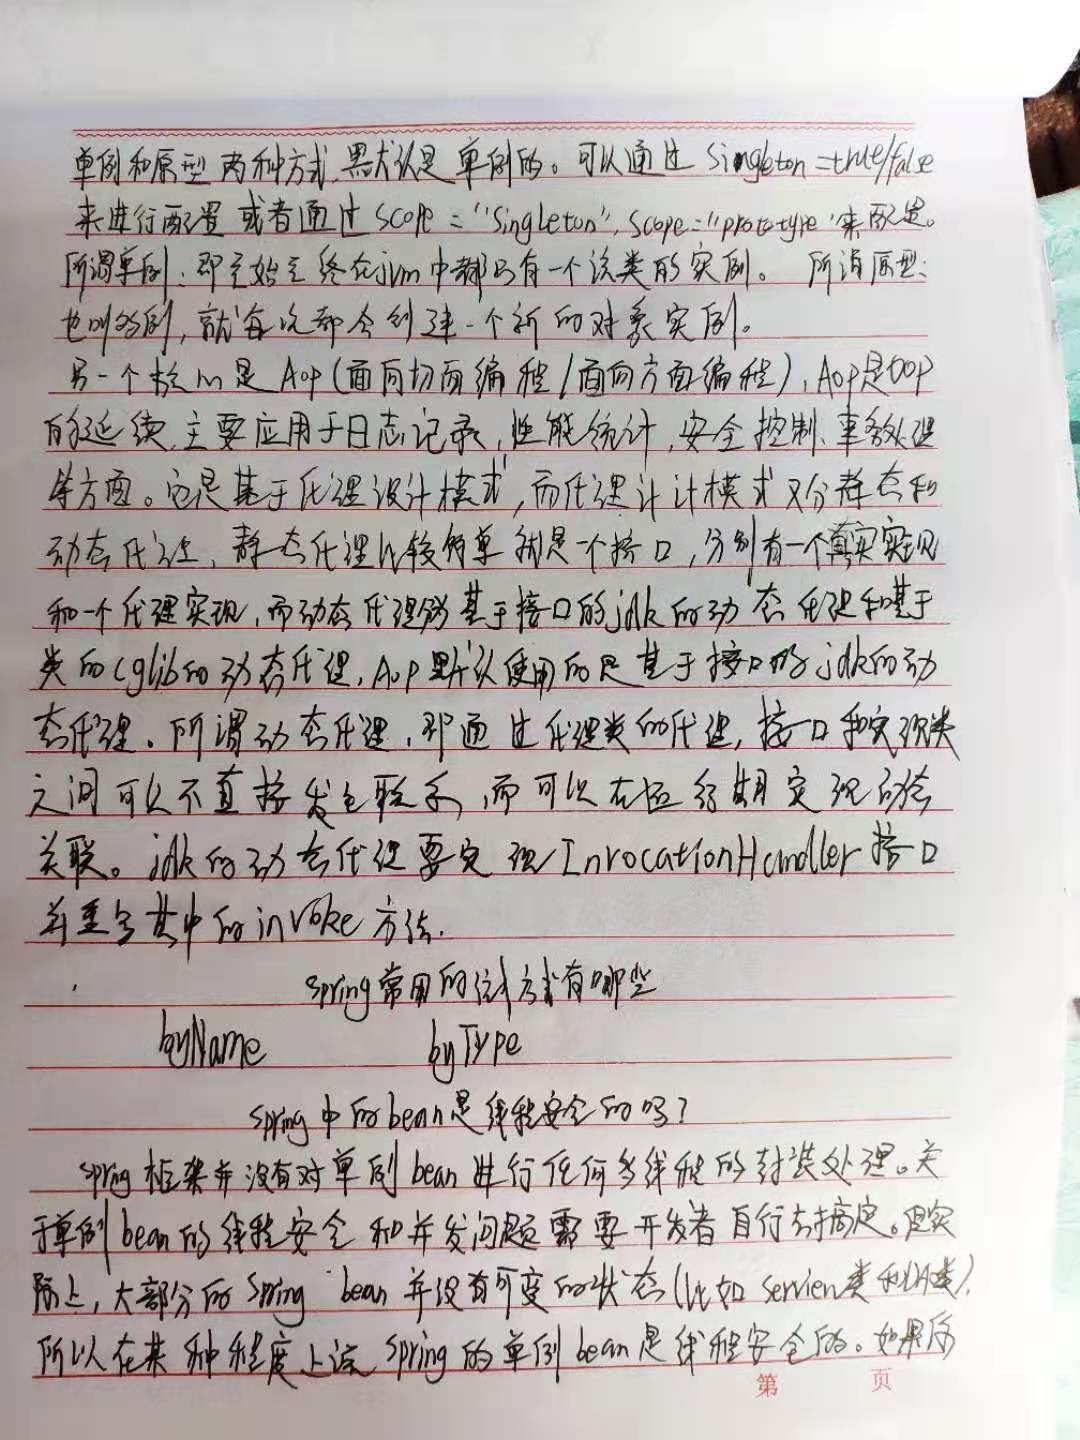 单例和原型两种方式,默认是单例的。可以通过 Singleton=true/false
来进行配置 或者通过 scope="Singleton", scope="prototype"来配置。
所谓单例:即至始至终在jvm中都只有一个该类的实例。 所谓原型:
也叫多例,就每次都会创建一个新的对象实例。
另一个核心是 Aop(面向切面编程/面向方面编程),Aop是OOP
的延续,主要应用于日志记录,性能统计,安全控制、事务处理
等方面。它是基于代理设计模式,而代理计计模式又分静态和
动态代理,静态代理比较简单就是一个接口,分别有一个真实实现
和一个代理实现,而动态代理分基于接口的jdk的动态代理和基于
类的cglib的动态代理,Aop默认使用的是基于接口的jdk的动
态代理。所谓动态代理,即通过代理类的代理,接口和实现类
之间可以不直接发生联系,而可以在运行期实现动态
关联。jdk的动态代理要实现InvocationHandler接口
并重写其中的invoke方法.
spring常用的 方式有哪些
byName byType
spring中的bean是线程安全的吗?
spring框架并没有对单例bean进行任何多线程的封装处理。关
于单例bean的线程安全和并发问题需要开发者自行去搞定。但实
际上,大部分的Spring bean并没有可变的状态(比如 类和 类),
所以在某种程度上说spring的单例bean是线程安全的。如果
第 页